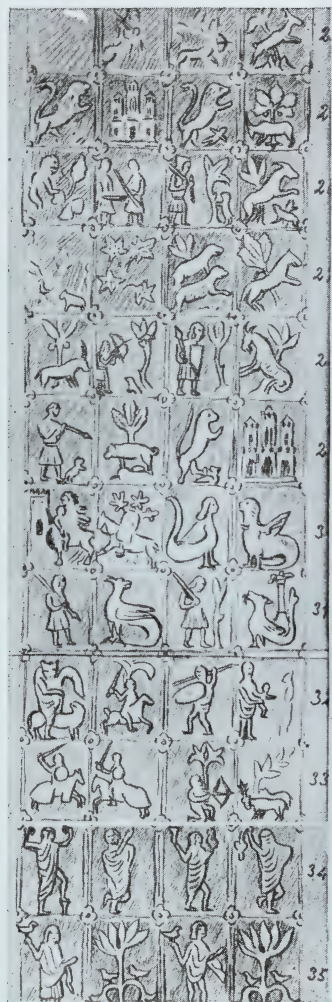 2
2
2
2
2
2
3
3
32
33
34
35